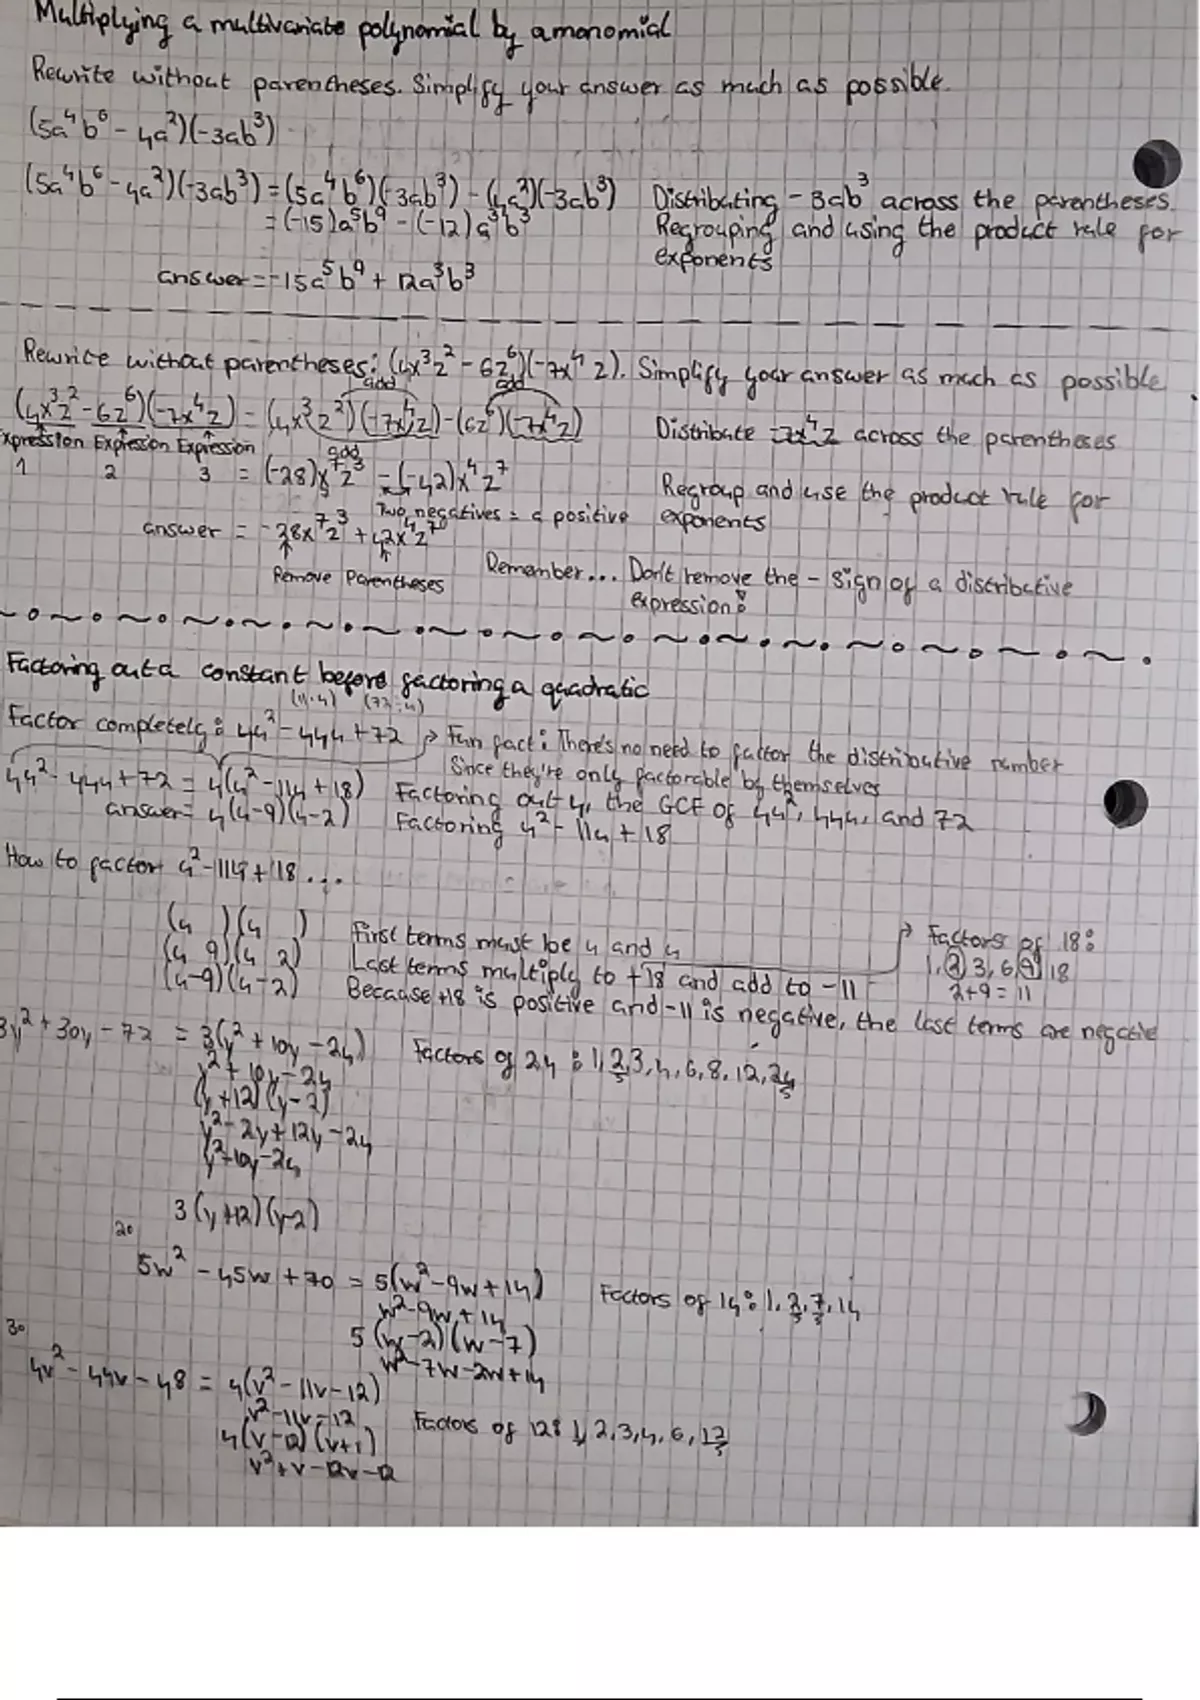 Multiplying a multivariate polynomial by a monomial
Rewrite without parentheses. Simplify your answer as much as possible.
(5a⁴b⁶ - 4a²)(-3ab³)
(5a⁴b⁶ - 4a²)(-3ab³) = (5a⁴b⁶)(-3ab³) - (4a²)(-3ab³) Distributing -3ab³ across the parentheses.
= (-15)a⁵b⁹ - (-12)a³b³ Regrouping and using the product rule for
exponents
answer = -15a⁵b⁹ + 12a³b³
Rewrite without parentheses: (4x³z² - 6z⁶)(-7x⁴z). Simplify your answer as much as possible
add add
(4x³z² - 6z⁶)(-7x⁴z) = (4x³z²)(-7x⁴z) - (6z⁶)(-7x⁴z) Distribute -7x⁴z across the parentheses
Expression Expression Expression
add
1 2 3 = (-28)x⁷z³ - (-42)x⁴z⁷ Regroup and use the product rule for
Two negatives = a positive exponents
answer = -28x⁷z³ + 42x⁴z⁷
Remove Parentheses Remember... Don't remove the - sign of a distributive
expression!
Factoring out a constant before factoring a quadratic
(11·4) (72÷4)
Factor completely: 4u² - 44u + 72 → Fun fact: There's no need to factor the distributive number
Since they're only factorable by themselves
4u² - 44u + 72 = 4(u² - 11u + 18) Factoring out 4, the GCF of 4u², 44u, and 72
answer = 4(u-9)(u-2) Factoring u² - 11u + 18
How to factor u² - 11u + 18 ...
(u )(u ) First terms must be u and u → Factors of 18:
(u 9)(u 2) Last terms multiply to +18 and add to -11 1, 2, 3, 6, 9, 18
(u-9)(u-2) Because +18 is positive and -11 is negative, the last terms are negative
2+9 = 11
3y² + 30y - 72 = 3(y² + 10y - 24) Factors of 24: 1, 2, 3, 4, 6, 8, 12, 24
y² + 10y - 24
(y+12)(y-2)
y² - 2y + 12y - 24
y² + 10y - 24
3(y+12)(y-2)
2.
5w² - 45w + 70 = 5(w² - 9w + 14) Factors of 14: 1, 2, 7, 14
w² - 9w + 14
5(w-2)(w-7)
w² - 7w - 2w + 14
3.
4v² - 44v - 48 = 4(v² - 11v - 12)
v² - 11v - 12 Factors of 12: 1, 2, 3, 4, 6, 12
4(v-12)(v+1)
v² + v - 12v - 12